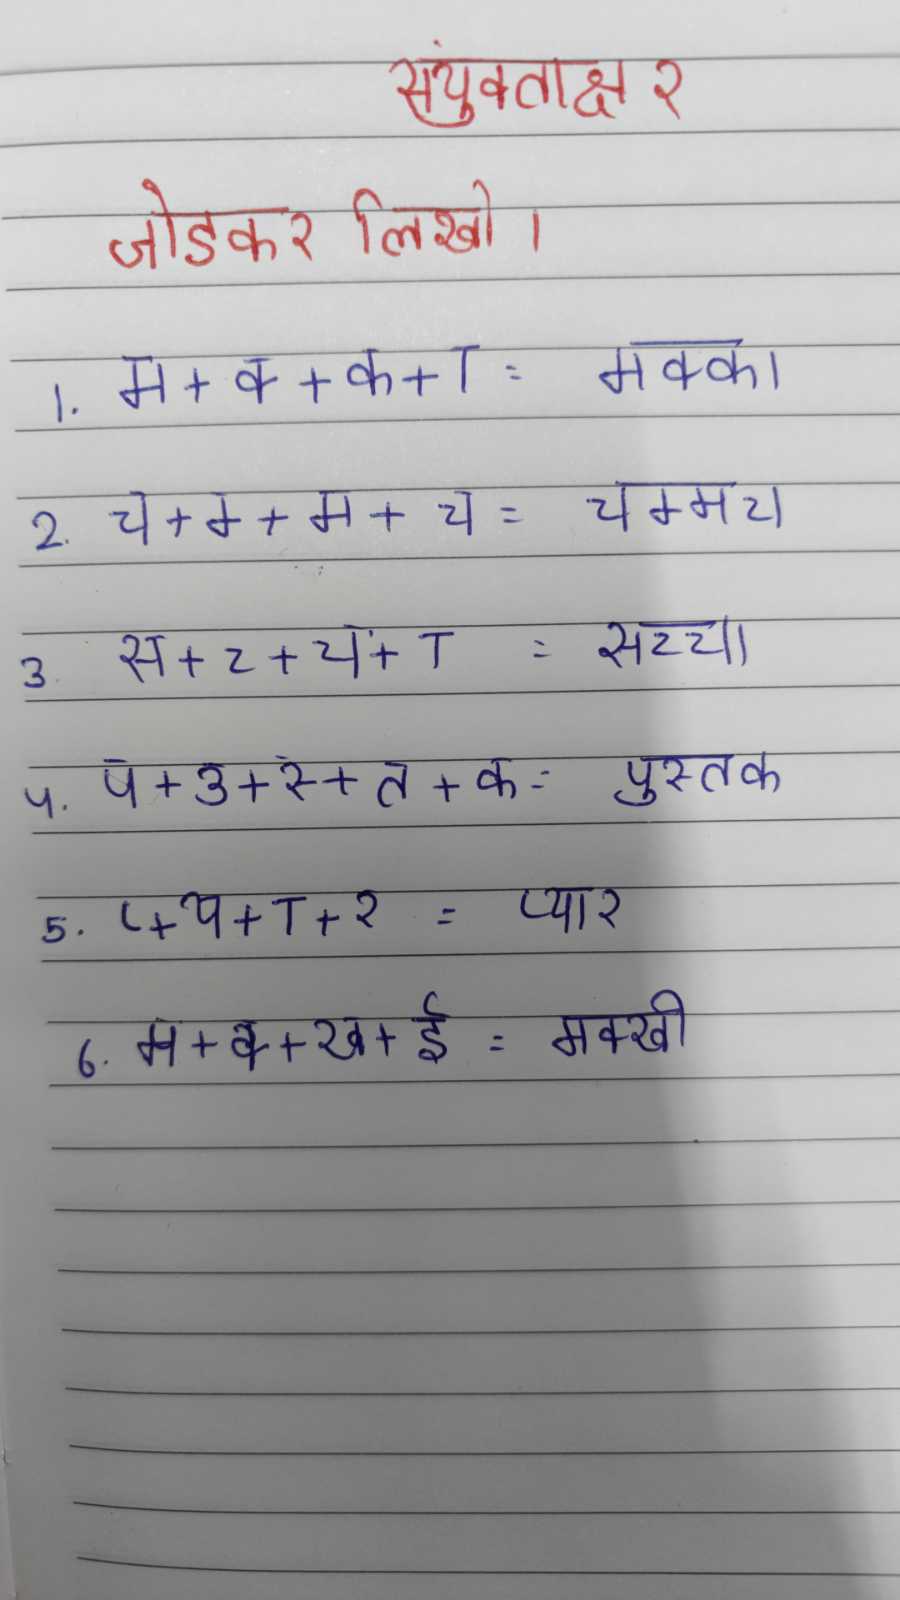 संयुक्ताक्षर
जोडकर लिखो।
1. म + क् + क + ा = मक्का
2. च + म् + म + च = चम्मच
3. स + च् + च + ा = सच्चा
4. प + उ + स् + त + क = पुस्तक
5. प् + य + ा + र = प्यार
6. म + क् + ख + ई = मक्खी